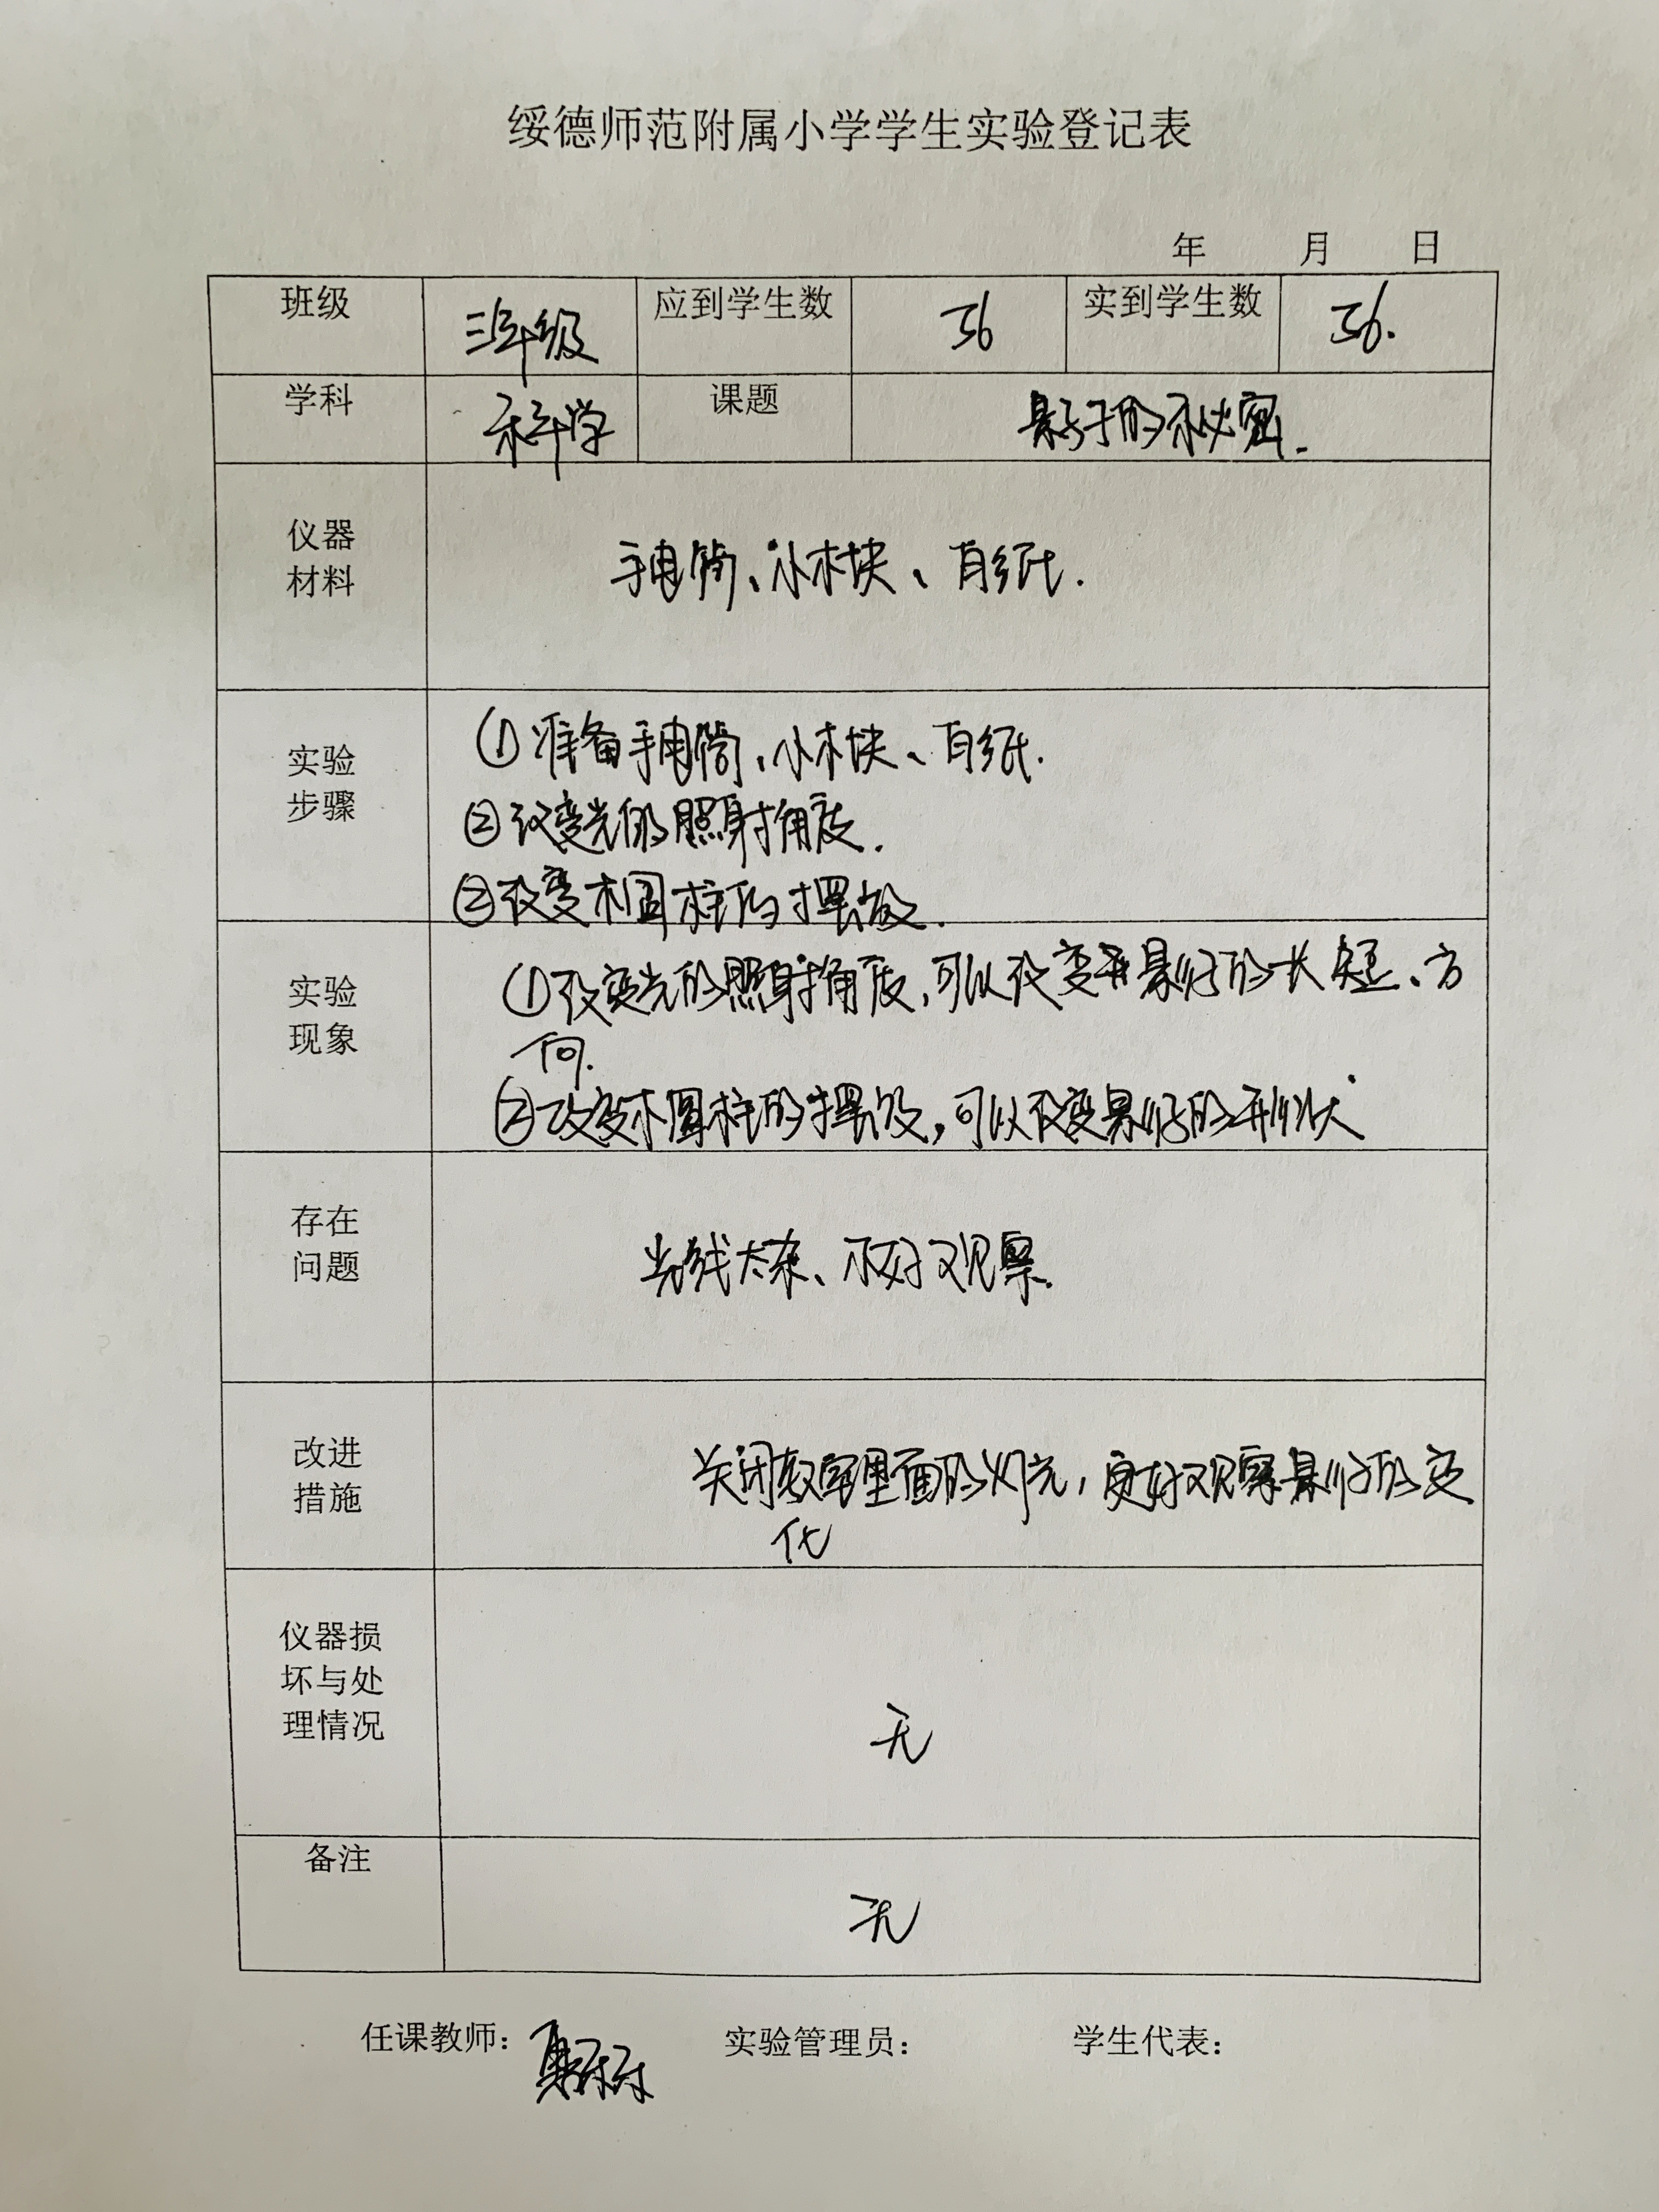 绥德师范附属小学学生实验登记表
年 月 日
班级 三年级 应到学生数 56 实到学生数 56.
学科 科学 课题 影子的秘密.
仪器
材料
手电筒、小木块、白纸.
实验
步骤
①准备手电筒、小木块、白纸.
②改变光的照射角度.
③改变木圆柱的摆放.
实验
现象
①改变光的照射角度,可以改变影子的长短、方
向.
②改变木圆柱的摆放,可以改变影子的形状
存在
问题
光线太杂、不好观察.
改进
措施
关闭教室里面的灯光,更好观察影子的变
化
仪器损
坏与处
理情况
无
备注
无
任课教师: 实验管理员: 学生代表: